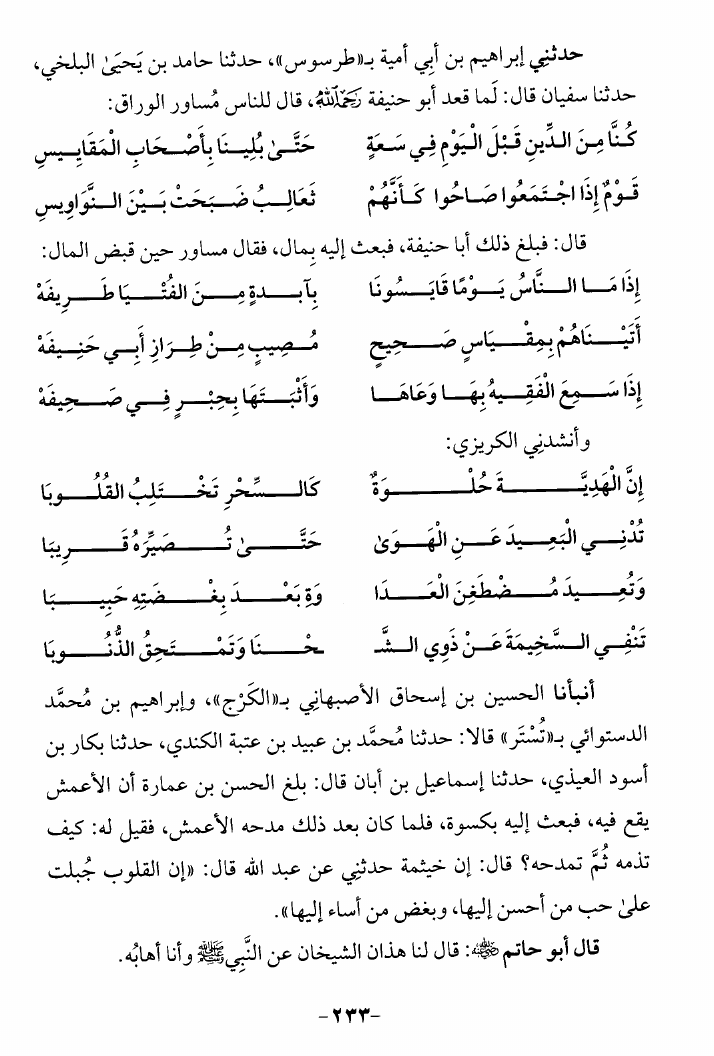 حدثنِي إبراهيم بن أبِي أمية بـ«طرسوس»، حدثنا حامد بن يَحيَىٰ البلخي،
حدثنا سفيان قال: لَما قعد أبو حنيفة رَحِمَهُ اللَّهُ، قال للناس مُساور الوراق:
كُنَّا مِنَ الدِّينِ قَبْلَ الْيَوْمِ فِي سَعَةٍ حَتَّىٰ بُلِينَا بِأَصْحَابِ الْمَقَايِيسِ
قَوْمٌ إِذَا اجْتَمَعُوا صَاحُوا كَأَنَّهُمْ ثَعَالِبُ ضَبَحَتْ بَيْنَ النَّوَاوِيسِ
قال: فبلغ ذلك أبا حنيفة، فبعث إليه بِمال، فقال مساور حين قبض المال:
إِذَا مَا النَّاسُ يَوْمًا قَايَسُونَا بِآبِدَةٍ مِنَ الفُتْيَا طَرِيفَهْ
أَتَيْنَاهُمْ بِمِقْيَاسٍ صَحِيحٍ مُصِيبٍ مِنْ طِرَازِ أَبِي حَنِيفَهْ
إِذَا سَمِعَ الْفَقِيهُ بِهَا وَعَاهَا وَأَثْبَتَهَا بِحِبْرٍ فِي صَحِيفَهْ
وأنشدنِي الكريزي:
إِنَّ الْهَدِيَّةَ حُلْوَةٌ كَالسِّحْرِ تَخْتَلِبُ القُلُوبَا
تُدْنِي الْبَعِيدَ عَنِ الْهَوَىٰ حَتَّىٰ تُصَيِّرَهُ قَرِيبَا
وَتُعِيدَ مُضْطَغِنَ الْعَدَا وَةِ بَعْدَ بِغْضَتِهِ حَبِيبَا
تَنْفِي السَّخِيمَةَ عَنْ ذَوِي الشَّـ ـحْنَا وَتَمْتَحِقُ الذُّنُوبَا
أنبأنا الحسين بن إسحاق الأصبهانِي بـ«الكَرْج»، وإبراهيم بن مُحمَّد
الدستوائي بـ«تُسْتَر» قالا: حدثنا مُحمَّد بن عبيد بن عتبة الكندي، حدثنا بكار بن
أسود العيذي، حدثنا إسماعيل بن أبان قال: بلغ الحسن بن عمارة أن الأعمش
يقع فيه، فبعث إليه بكسوة، فلما كان بعد ذلك مدحه الأعمش، فقيل له: كيف
تذمه ثُمَّ تمدحه؟ قال: إن خيثمة حدثنِي عن عبد الله قال: «إن القلوب جُبلت
علىٰ حب من أحسن إليها، وبغض من أساء إليها».
قال أبو حاتم رضي الله عنه: قال لنا هذان الشيخان عن النَّبِي ﷺ وأنا أهابُه.
-٢٣٣-